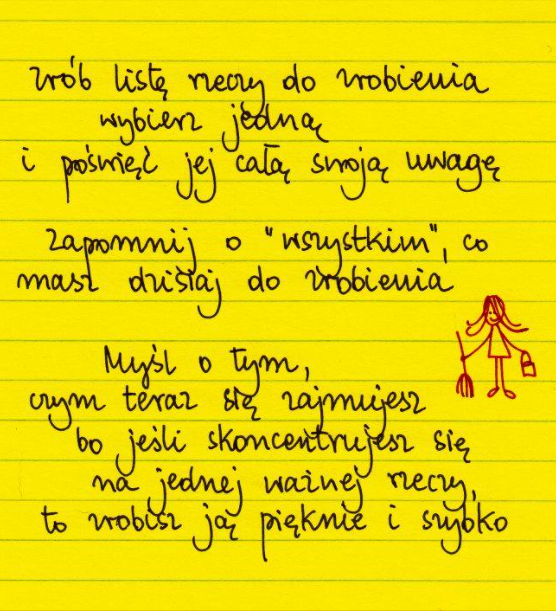 zrób listę rzeczy do zrobienia
wybierz jedną
i poświęć jej całą swoją uwagę
Zapomnij o "wszystkim", co
masz dzisiaj do zrobienia
Myśl o tym,
czym teraz się zajmujesz
bo jeśli skoncentrujesz się
na jednej ważnej rzeczy,
to zrobisz ją pięknie i szybko